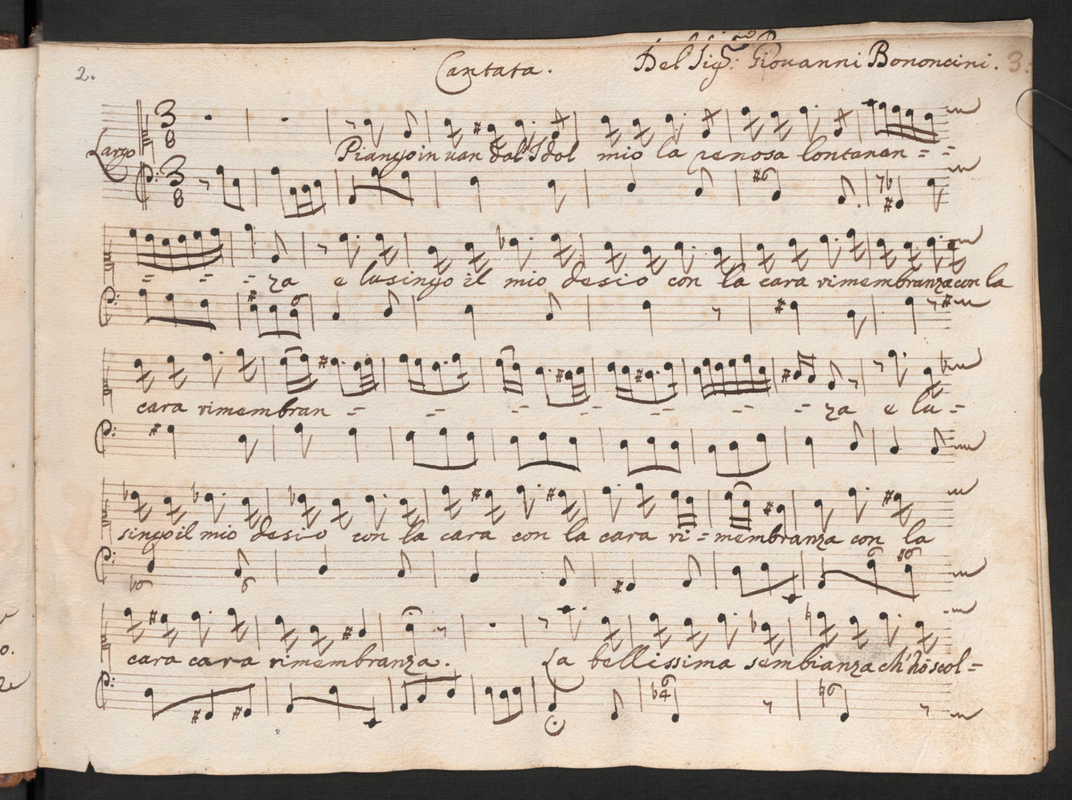 2. Cantata. Del Sig.r Giovanni Bononcini. 3.
Largo
3 8
Piango in van dal'Idol mio la penosa lontanan = =
3 8 #6 7 6 #
= = - za e lusingo il mio desio con la cara rimembranza con la
cara rimembran - - - - - - - - za e lu =
singo il mio desio con la cara con la cara ri = membranza con la
b6 6 6 #6
cara cara rimembranza. La bellissima sembianza ch'hò scol =
b4 6